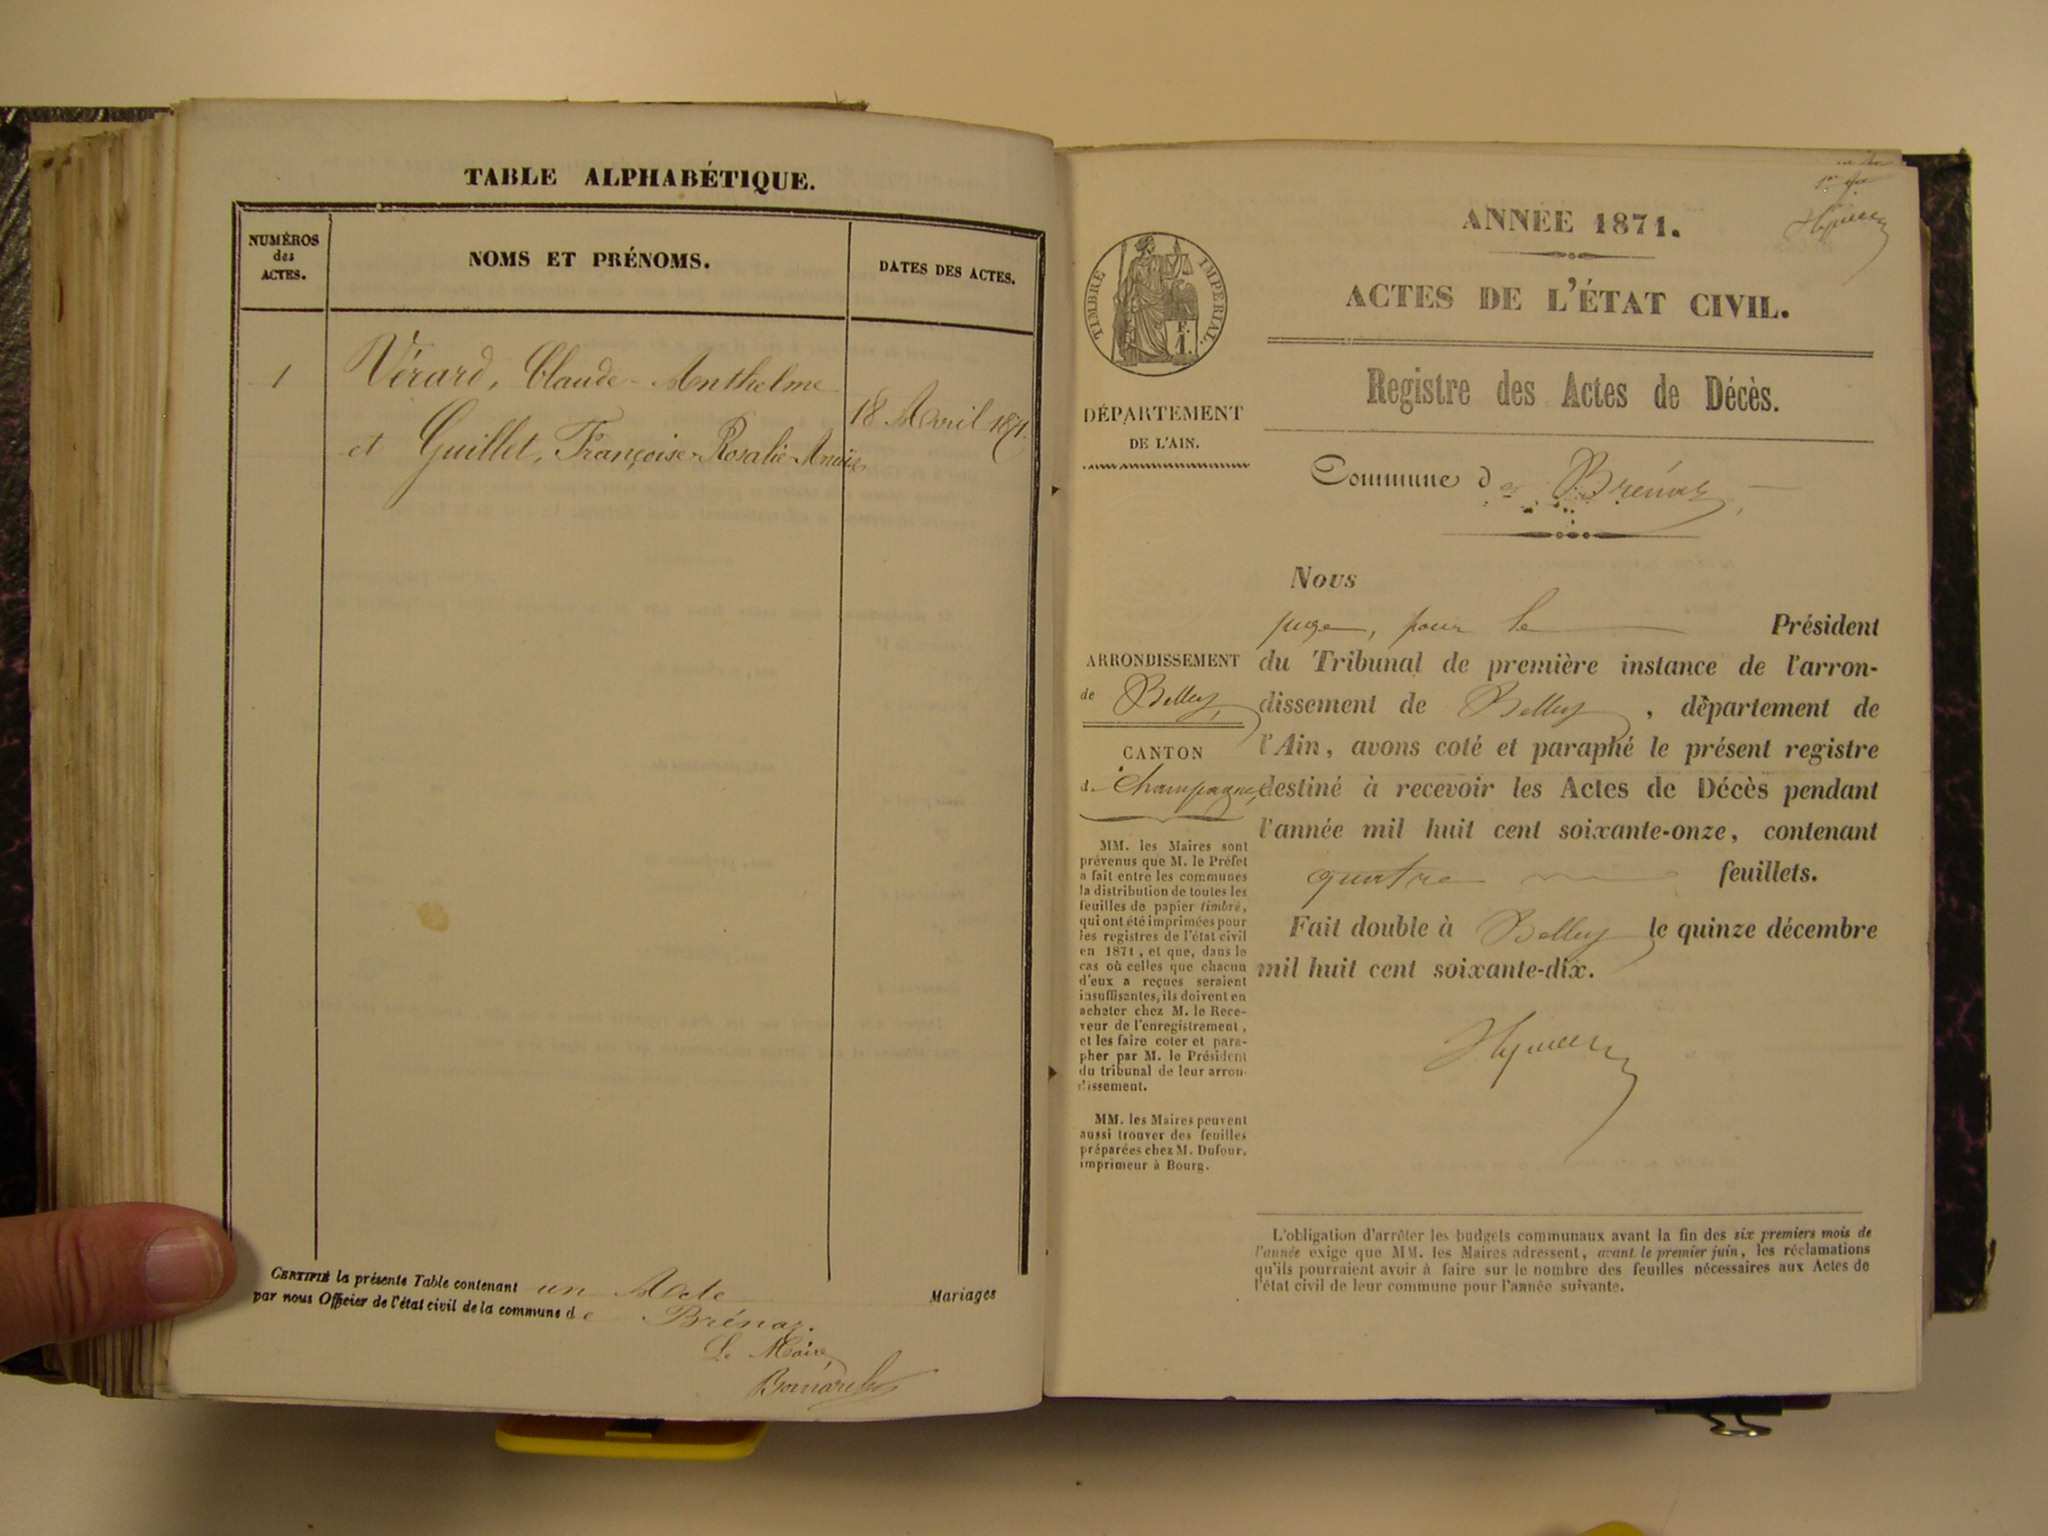 TABLE ALPHABÉTIQUE.
NUMÉROS
des
ACTES.
NOMS ET PRÉNOMS.
DATES DES ACTES.
1
Vérard, Claude-Anthelme
et Guillet, Françoise-Rosalie-Anaïs
18 Avril 1871.
CERTIFIÉ la présente Table contenant un Acte Mariages
par nous Officier de l'état civil de la commune de Brénaz.
Le Maire
TIMBRE IMPÉRIAL.
F.
1.
DÉPARTEMENT
DE L'AIN.
ARRONDISSEMENT
de Belley,
CANTON
de Champagne,
MM. les Maires sont
prévenus que M. le Préfet
a fait entre les communes
la distribution de toutes les
feuilles de papier timbré,
qui ont été imprimées pour
les registres de l'état civil
en 1871, et que, dans le
cas où celles que chacun
d'eux a reçues seraient
insuffisantes, ils doivent en
acheter chez M. le Rece-
veur de l'enregistrement,
et les faire coter et para-
pher par M. le Président
du tribunal de leur arron-
dissement.
MM. les Maires peuvent
aussi trouver des feuilles
préparées chez M. Dufour,
imprimeur à Bourg.
ANNÉE 1871.
ACTES DE L'ÉTAT CIVIL.
Registre des Actes de Décès.
Commune de Brénaz,
Nous
juge, pour le Président
du Tribunal de première instance de l'arron-
dissement de Belley, département de
l'Ain, avons coté et paraphé le présent registre
destiné à recevoir les Actes de Décès pendant
l'année mil huit cent soixante-onze, contenant
quatre feuillets.
Fait double à Belley le quinze décembre
mil huit cent soixante-dix.
L'obligation d'arrêter les budgets communaux avant la fin des six premiers mois de
l'année exige que MM. les Maires adressent, avant le premier juin, les réclamations
qu'ils pourraient avoir à faire sur le nombre des feuilles nécessaires aux Actes de
l'état civil de leur commune pour l'année suivante.